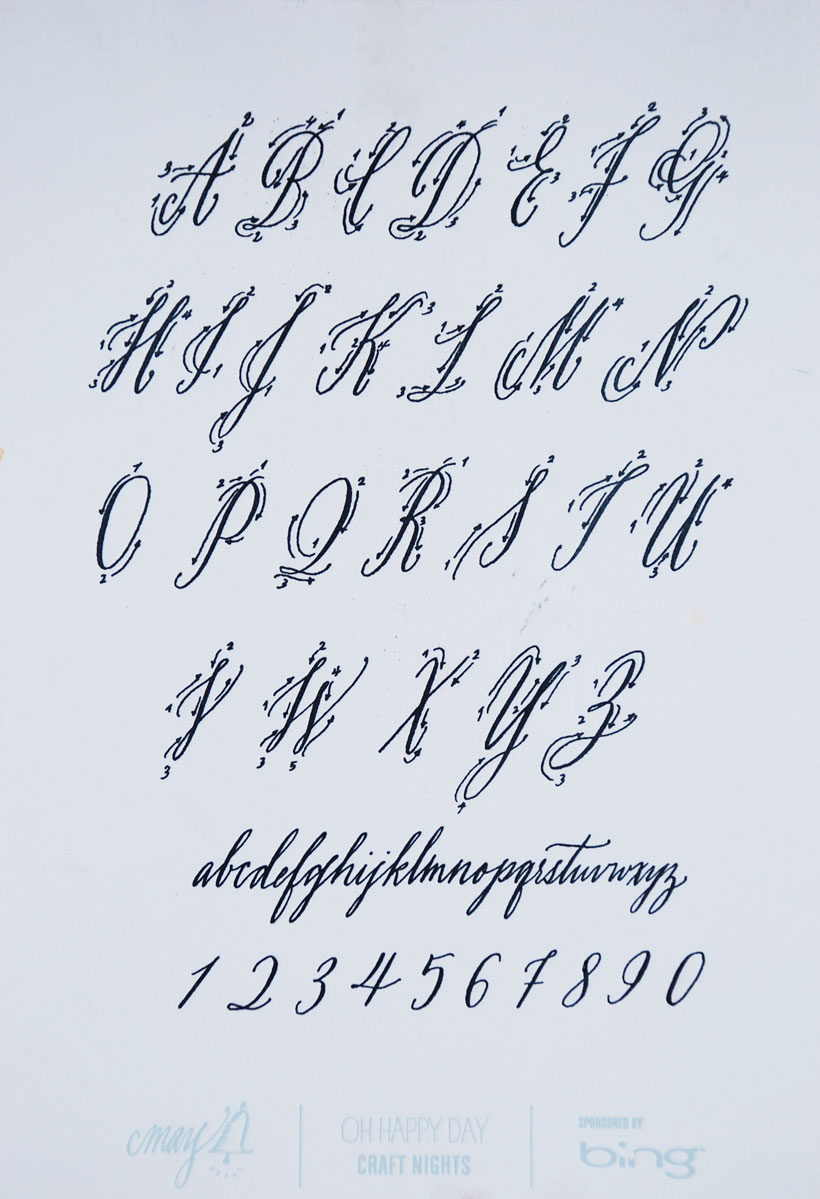 A B C D E F G
H I J K L M N
O P Q R S T U
V W X Y Z
abcdefghijklmnopqrstuvwxyz
1 2 3 4 5 6 7 8 9 0
cmay
OH HAPPY DAY
CRAFT NIGHTS
SPONSORED BY
bing